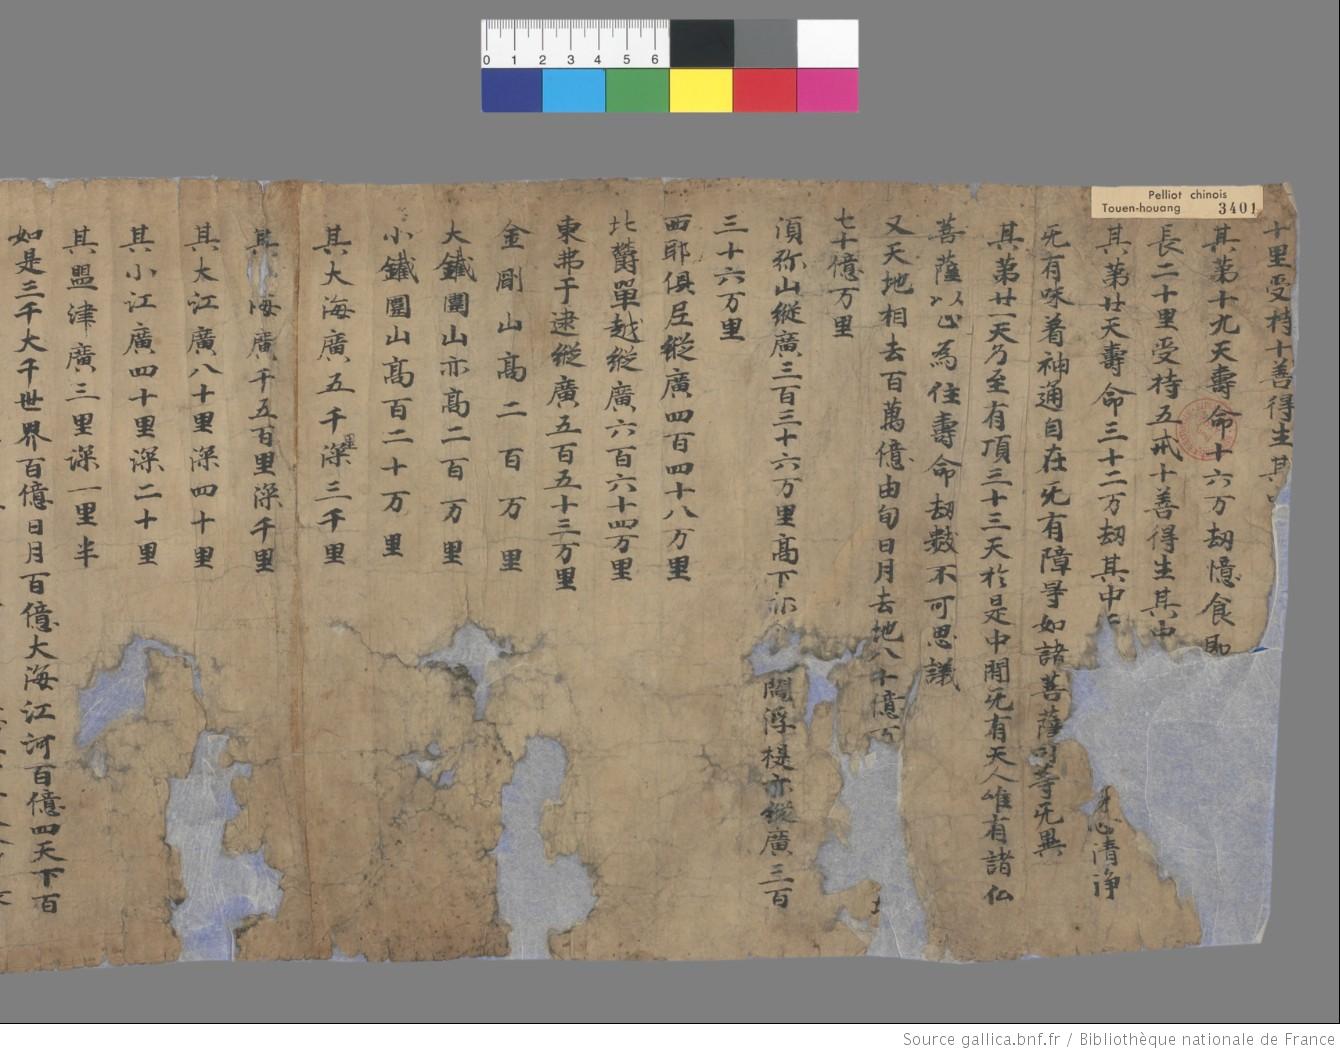 Pelliot chinois
Touen-houang 3401
0 1 2 3 4 5 6
十里受持十善得生其
其第十九天壽命十六万劫憶食即
長二十里受持五戒十善得生其中
其第廿天壽命三十二万劫其中 身心清淨
无有味着神通自在无有障㝵如諸菩薩 等无異
其第廿一天乃至有頂三十三天於是中間无有天人唯有諸仏
菩薩以心為住壽命劫數不可思議
又天地相去百萬億由旬日月去地八十億
七十億万里
湏弥山縱廣三百三十六万里高下亦 閻浮提亦縱廣三百
三十六万里
西耶俱尼縱廣四百四十八万里
北欝單越縱廣六百六十四万里
東弗于逮縱廣五百五十三万里
金剛山高二百万里
大鐵圍山亦高二百万里
小鐵圍山高百二十万里
其大海廣五千里深三千里
其 海廣千五百里深千里
其大江廣八十里深四十里
其小江廣四十里深二十里
其盟津廣三里深一里半
如是三千大千世界百億日月百億大海江河百億四天下百
Source gallica.bnf.fr / Bibliothèque nationale de France